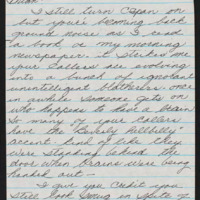 I still turn Capan on
but your's becoming back
ground noise as I read
a book, or my morning
newspaper. It strikes me
your callers are evolving
into a bunch of ignorant
unintelligent blatherers. Once
in awhile someone gets on
who happens to have a brain.
So many of your callers
have the Beverly Hillbilly
accent. Kind of like they
were standing behind the
door when brains were being
handed out —
I give you credit you
still look loving in spite of